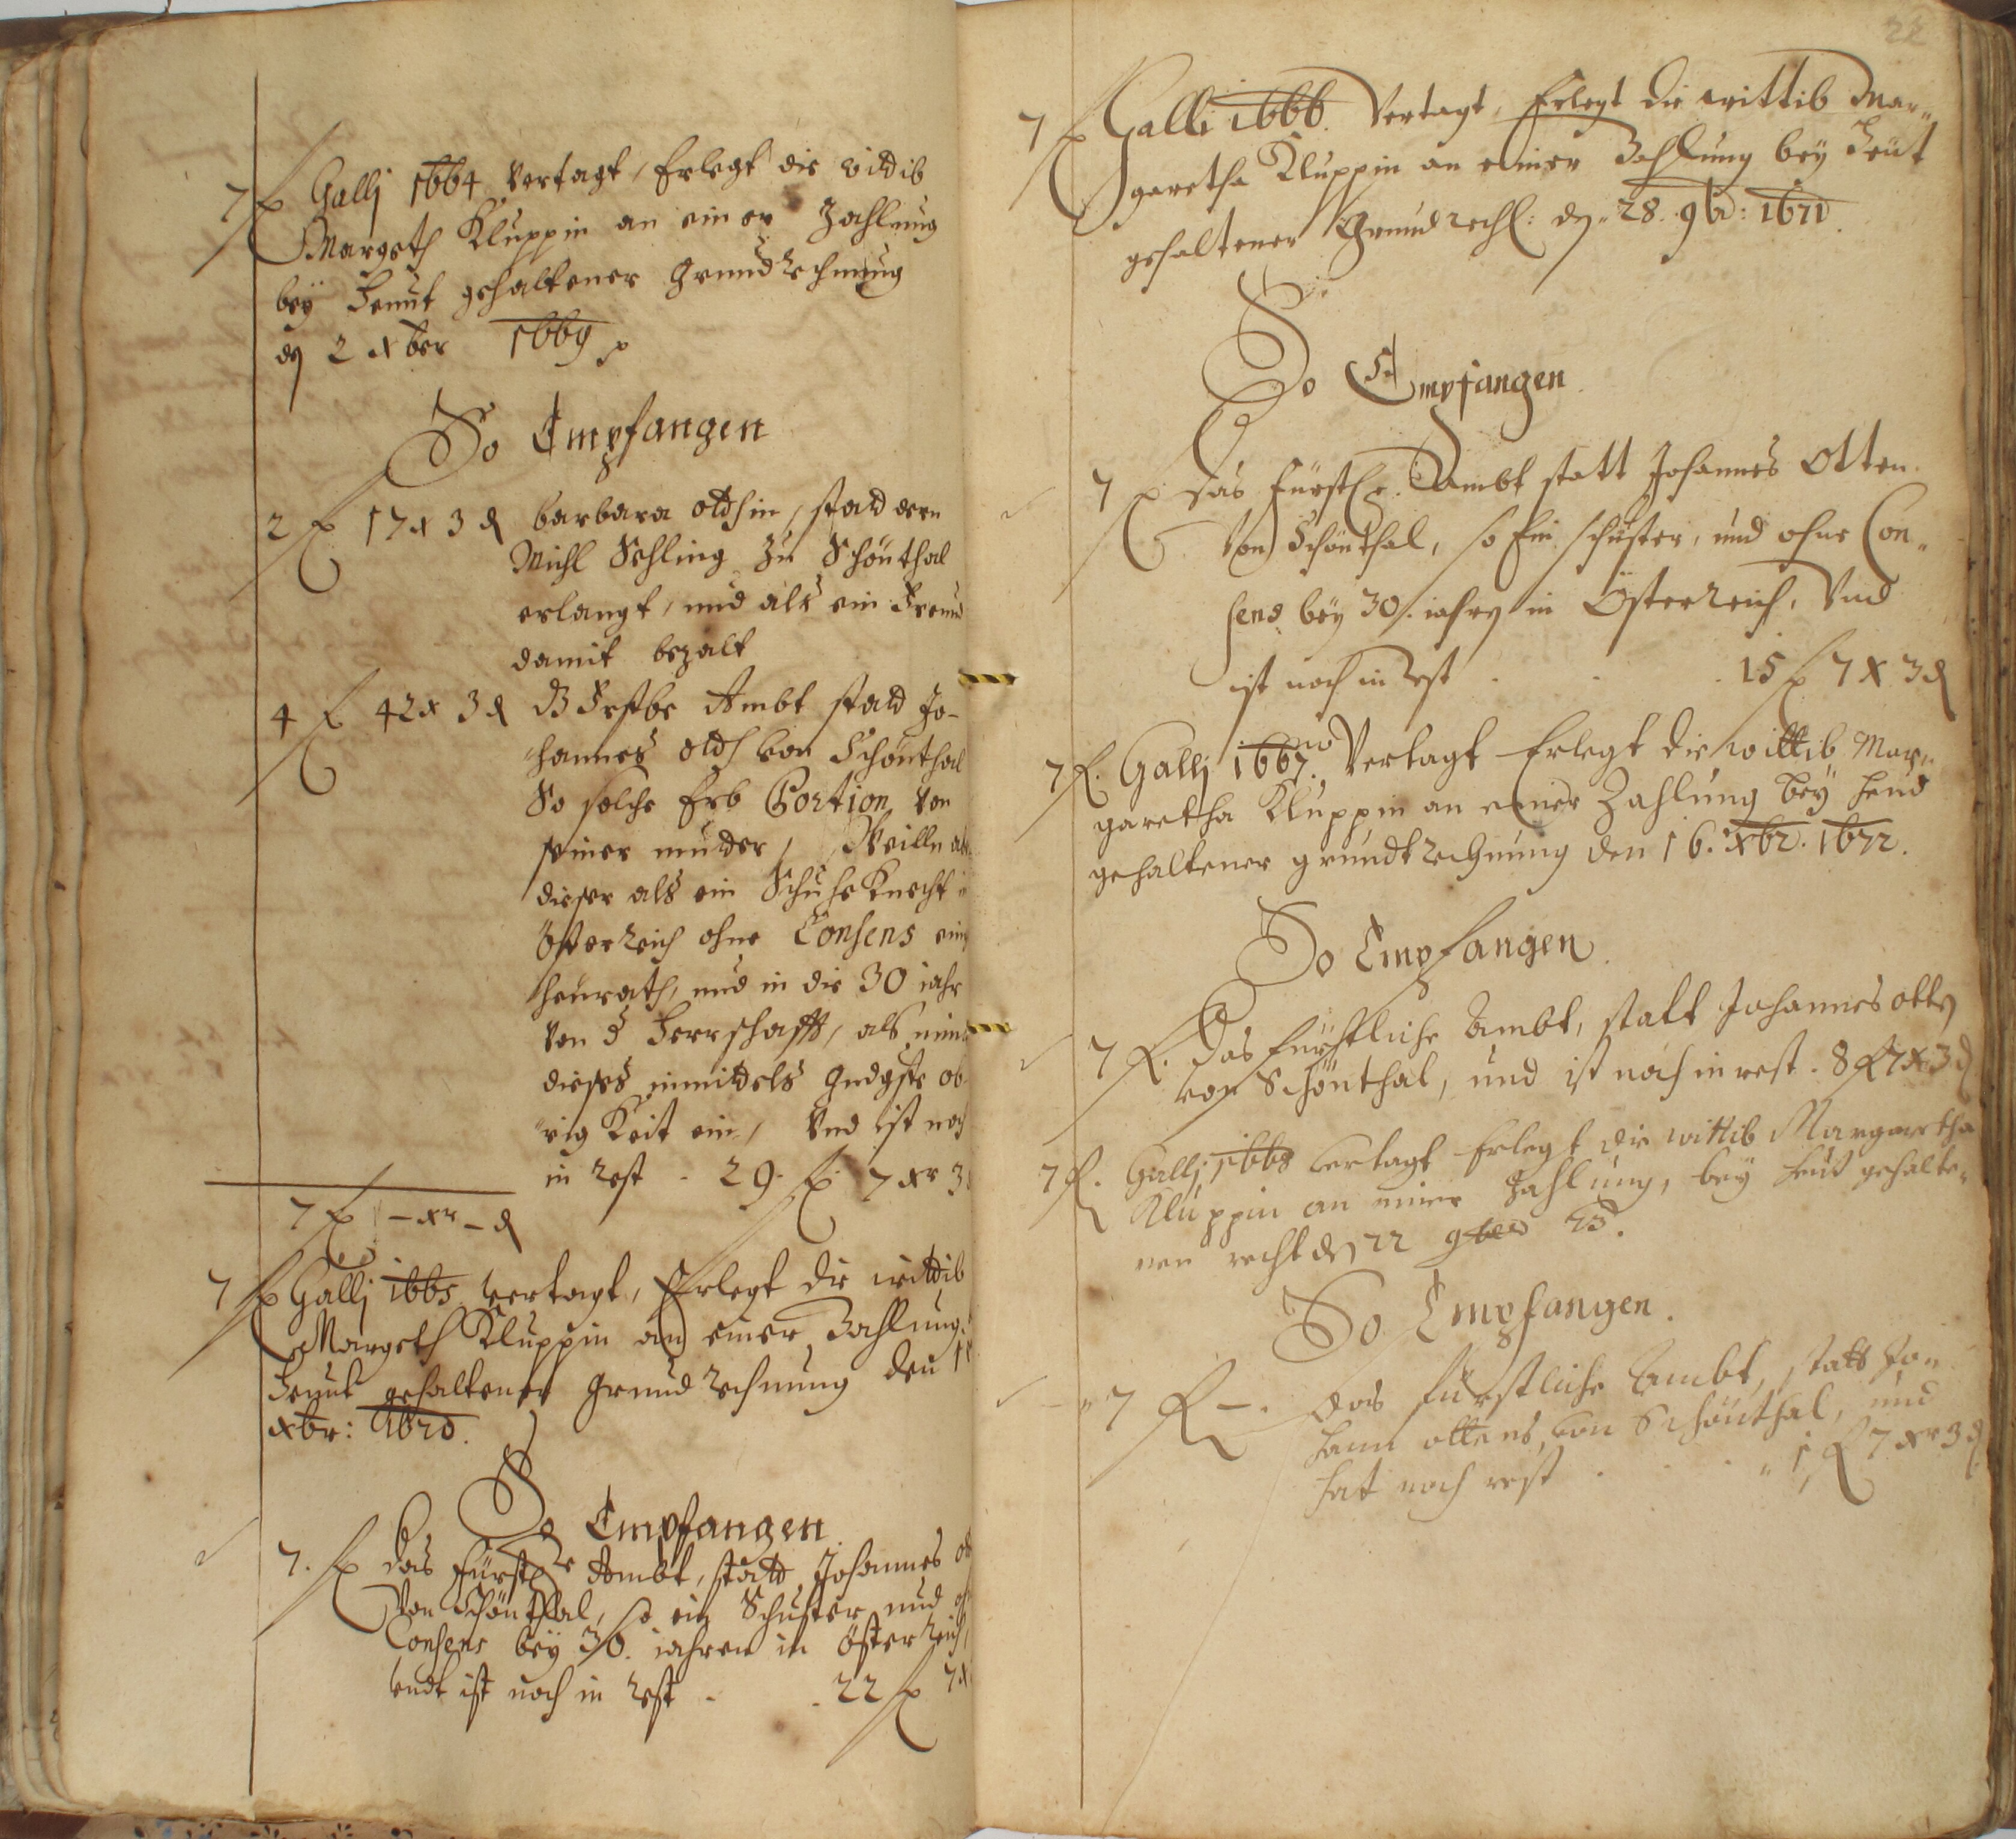 7 f Gallj 1664 vertagt, Erlegt die witdib
Margeth Kluppin an einer Zahlung
bey Heunt gehaltener Grundrechnung
dn 2 xber 1669
So Empfangen
2 f 17 x 3 d barbara otthin, stadt dern
Michl Schling Zu Schönthal
erlangt, und als ein Freund
damit bezalt
4 f 42 x 3 d Ambt stadt Jo-
hannes otth von Schönthal
So solche Erb Portion von
seiner mutter, Weilln
dieser als ein Schuhe Knecht
Österreich ohne Consens
heurath, und in die 30 iahr
von d Herrschafft, als
dieses inmittels Gndgste ob-
rigkeit ein, Vnd ist noch
in rest - 29. f 7 xr 3
7 f - xr - d
7 f Gallj 1665 vertagt, Erlegt die wittib
Margeth Kluppin an einer Zahlung
Heunt gehaltener Grundrechnung den
xbr: 1670.
So Empfangen
7. f das Fürstle Ambt, stadt Johannes
Von Schönthal, so ein Schuster und
Consens bey 30. iahren in Österreich,
vndt ist noch in rest - . 22 f 7 x
22
7 f Galli 1666. Vertagt, Erlegt die wittib Mar-
garetha Kluppin an einer Zahlung bey Heut
gehaltener Grundrechß: dn. 28. 9b: 1671.
So Empfangen.
7 f das Fürstle. Ambt statt Johannes Otten
Von Schönthal, so Ein schuster, und ohne Con-
sens bey 30. iahrn in Österreich, Vnd
ist noch in rest . . . 15 f 7 x 3 d
7 f. Gallj 1667. Vertagt Erlegt die wittib Mar-
garetha Kluppin an einer Zahlung bey heud
gehaltener grundtrechnung den 16. xbr. 1672.
So Empfangen.
7 f. das fürstliche Ambt, statt Johannes otten
von Schönthal, und ist noch in rest . 8 f 7 x 3 d
7 f. Gallj 1668 vertagt Erlegt die wittib Margaretha
Kluppin an einer Zahlung, bey heut gehalte-
nen recht dn 22 9ber 73.
So Empfangen.
7 f -. das fürstliche Ambt, statt Jo-
hann ottens, von Schönthal, und
hat noch rest . . . 1 f 7 xr 3 d